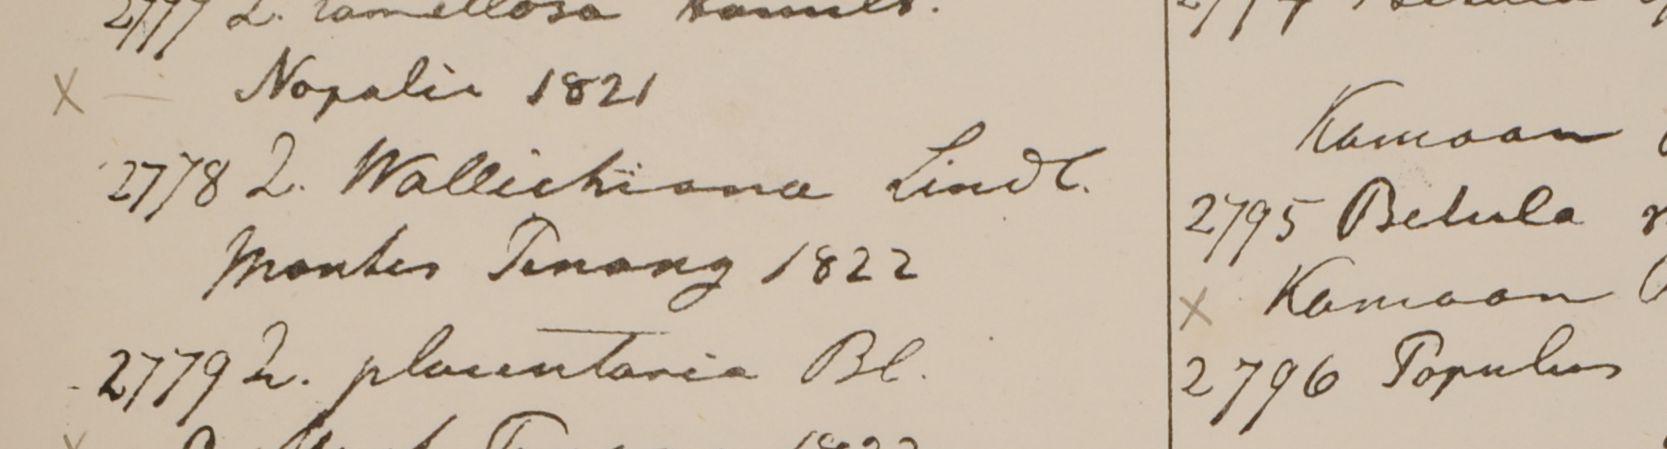 2777 Q. lamellosa
Nopalia 1821
2778 Q. Wallichiana Lindl.
Montes Penang 1822
2779 Q. placentaria Bl.
Penang 1822
Kamaon
2795 Betula
Kamaon
2796 Populus